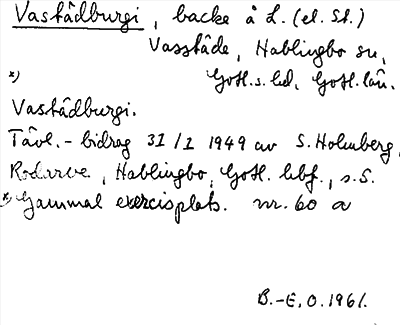 Vastådburgi, backe å L. (el. St.)
Vasstäde, Hablingbo sn,
*) Gotl. s. hd. Gotl. län.
Vastådburgi.
Tävl.-bidrag 31/1 1949 av S. Holmberg,
Rodarve, Hablingbo, Gotl. hbf., s. S.
*) Gammal exercisplats. nr. 60 a
B.-E. O. 1961.